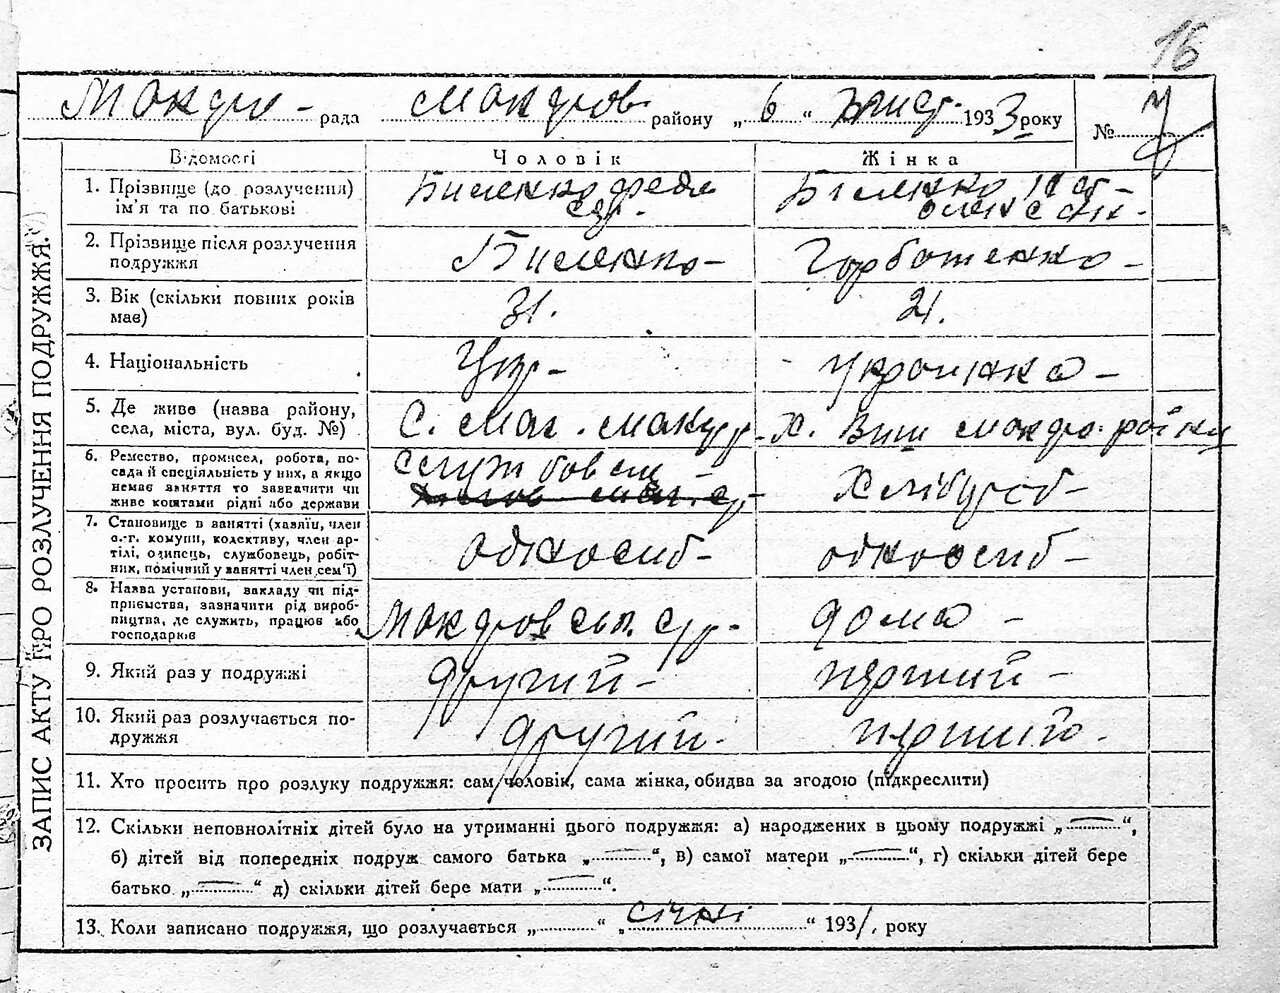 16
рада Макдров району „ 6 “ 1933 року № 7
ЗАПИС АКТУ ПРО РОЗЛУЧЕННЯ ПОДРУЖЖЯ.
Відомості Чоловік Жінка
1. Прізвище (до розлучення) Биленко
ім'я та по батькові
2. Прізвище після розлучення Биленко – Горботенко –
подружжя
3. Вік (скільки повних років 31. 21.
має)
4. Національність Укр – Украинка –
5. Де живе (назва району,
села, міста, вул. буд. №) С. Х. Виш
6. Ремество, промисел, робота, по-
сада й спеціяльність у них, а якщо
немає заняття то зазначити чи
живе коштами рідні або держави
7. Становище в занятті (хазяїн, член
а.-г. комуни, колективу, член ар-
тілі, одинець, службовець, робіт- односиб – односиб –
них, помічний у занятті член сем'ї)
8. Назва установи, закладу чи під-
приємства, зазначити рід вироб-
ництва, де служить, працює або дома –
господарків
9. Який раз у подружжі другий – перший –
10. Який раз розлучається по- другий. перший.
дружжя
11. Хто просить про розлуку подружжя: сам чоловік, сама жінка, обидва за згодою (підкреслити)
12. Скільки неповнолітніх дітей було на утриманні цього подружжя: а) народжених в цьому подружжі „ — “,
б) дітей від попередніх подруж самого батька „ — “, в) самої матери „ — “, г) скільки дітей бере
батько „ — “ д) скільки дітей бере мати „ — “.
13. Коли записано подружжя, що розлучається „ “ „ січні “ 1931. року